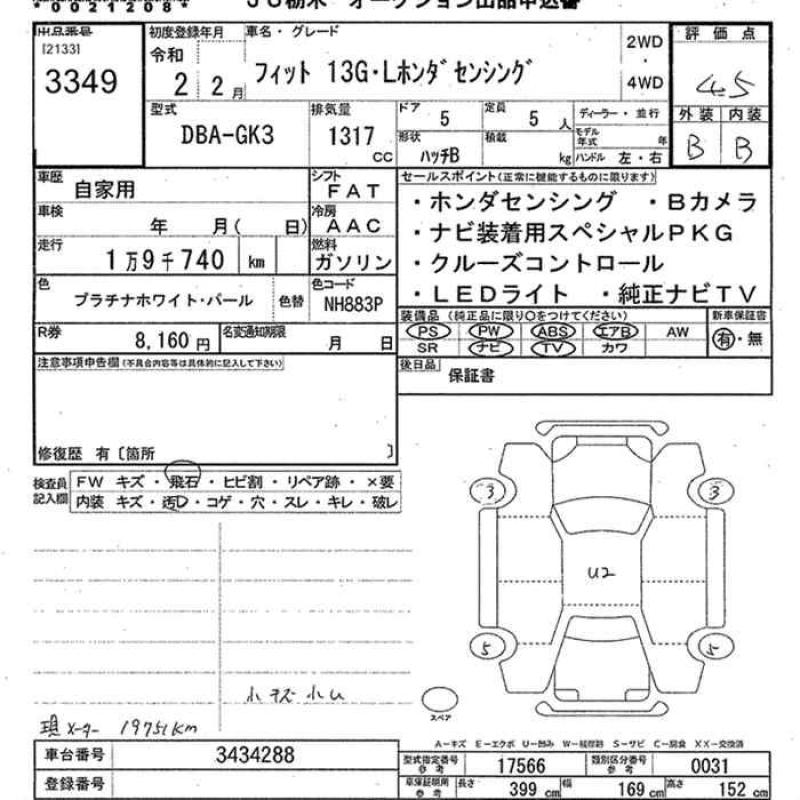 *0021208*
JU栃木 オークション出品申込書
出品番号 初度登録年月 車名・グレード 2WD・4WD 評価点
[2133] 3349 令和 2 2月 フィット 13G・Lホンダセンシング 4.5
型式 排気量 ドア 定員 ディーラー・並行 外装 内装
DBA-GK3 1317 CC 5 5人 モデル年式 年 B B
形状 ハッチB 積載 kg ハンドル 左・右
車歴 自家用 シフト FAT セールスポイント(正常に機能するものに限ります)
車検 年 月( 日) 冷房 AAC ・ホンダセンシング ・Bカメラ
走行 1万9千740 km 燃料 ガソリン ・ナビ装着用スペシャルPKG
・クルーズコントロール
色 プラチナホワイト・パール 色替 色コード NH883P ・LEDライト ・純正ナビTV
装備品(純正品に限り○をつけてください) 新車保証書
R券 8,160円 名変通知期限 月 日 PS PW ABS エアB AW 有・無
SR ナビ TV カワ
注意事項申告欄(不具合内容等は具体的に記入して下さい) 後日品 保証書
修復歴 有〔箇所 〕
検査員記入欄 FW キズ・飛石・ヒビ割・リペア跡・×要
内装 キズ・汚D・コゲ・穴・スレ・キレ・破レ
3 3
U2
5 5
小キズ小U
スペア
現メーター 19751km
A-キズ E-エクボ U-凹み W-補修跡 S-サビ C-腐食 XX-交換済
車台番号 3434288 型式指定番号 参考 17566 類別区分番号 参考 0031
登録番号 車庫証明用 参考 長さ 399 cm 幅 169 cm 高さ 152 cm